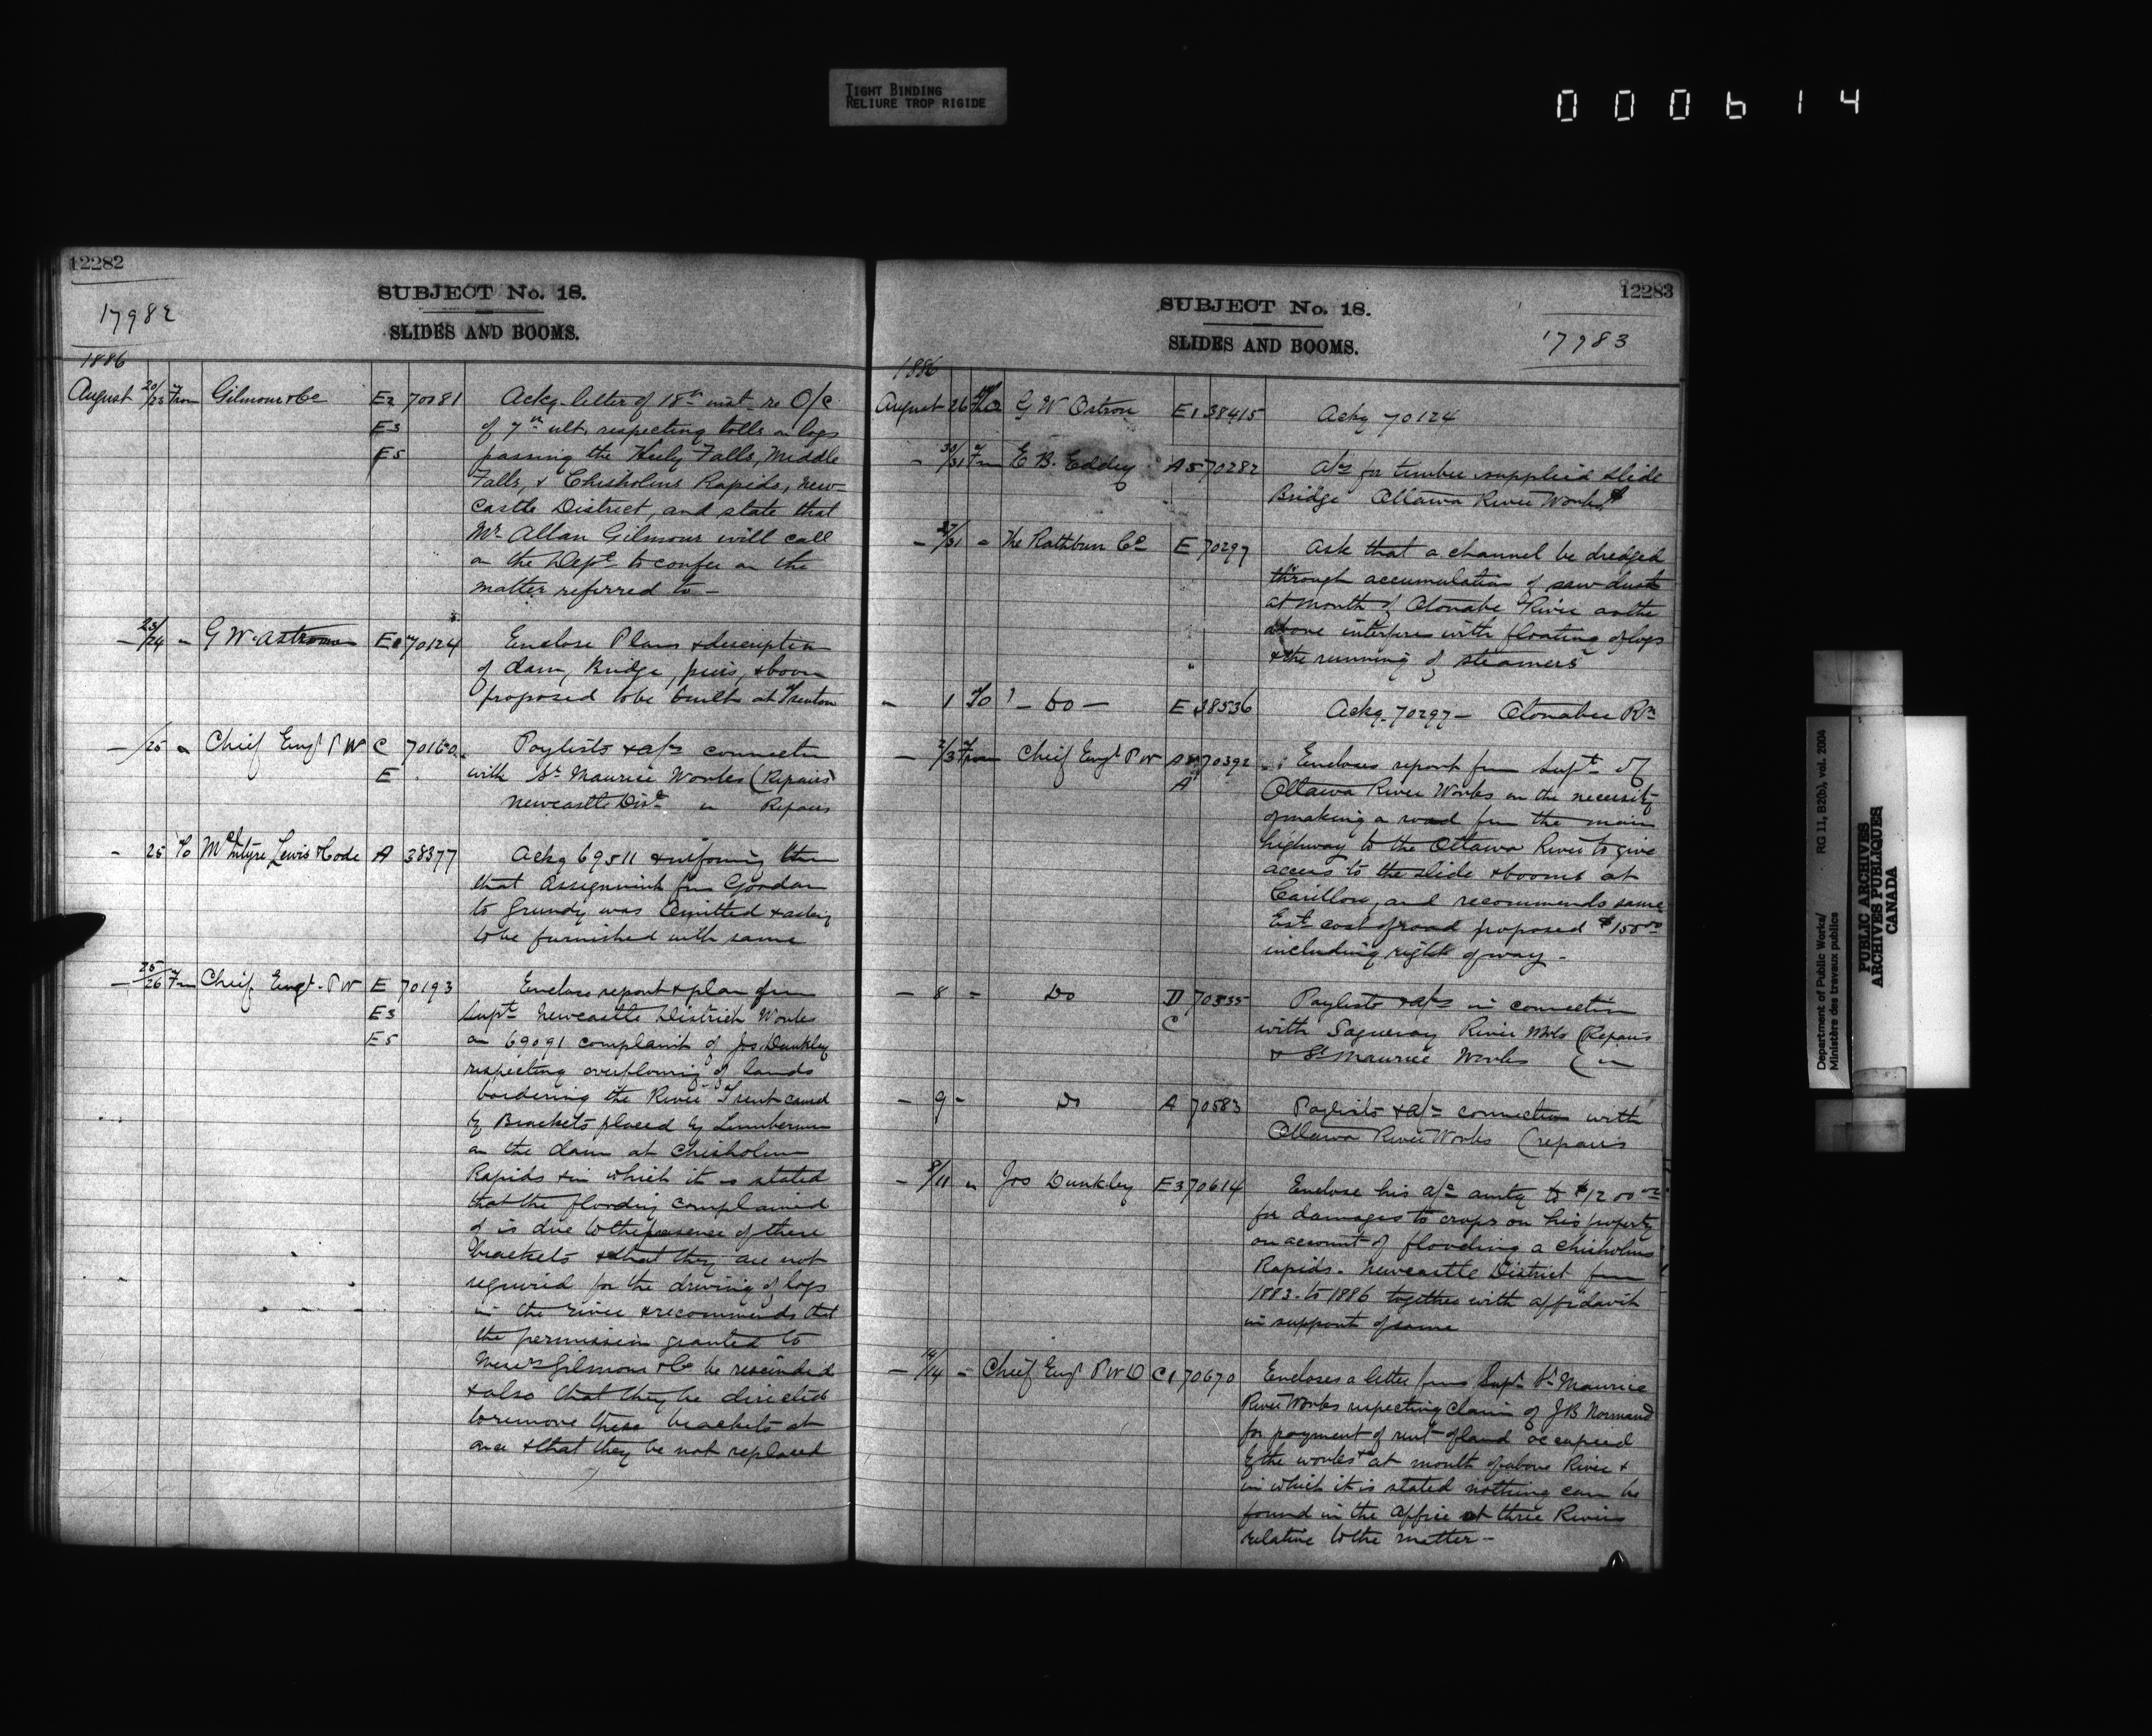 TIGHT BINDING
RELIURE TROP RIGIDE
000614
12282
SUBJECT No. 18.
17982
SLIDES AND BOOMS.
1886
August 20/23 From Gilmour & Co E2 70081 Ackg. letter of 18th inst. re O/C
E3 of 7th ult. respecting tolls on logs
E5 passing the Heely Falls, Middle
Falls, & Chisholms Rapids, New-
castle District, and state that
Mr. Allan Gilmour will call
on the Dept to confer on the
matter referred to -
- 23/24 " G W. Astrom E 70124 Enclose Plans & description
of dam, Bridge, piers, & boom
proposed to be built at Trenton
- /25 " Chief Engr P W C 70160 Paylists & a/cs connectn
E with St. Maurice Works (Repairs
Newcastle Dist. " Repairs
- 25 To McIntyre Lewis & Code A 38377 Ackg 69511 & informing them
that Assignment from Gordon
to Grundy was Omitted & asking
to be furnished with same
- 25/26 Fm Chief Engr. P W E 70193 Enclose report & plan from
E3 Supt. Newcastle District Works
E5 on 69091 complaint of Jos Dunkley
respecting overflowing of lands
bordering the River Trent caused
by Brackets placed by Lumbermen
on the dam at Chisholm
Rapids & in which it is stated
that the flooding complained
of is due to the presence of these
brackets & that they are not
required for the driving of logs
in the river & recommends that
the permission granted to
Messrs Gilmour & Co be rescinded
& also that they be directed
to remove these brackets at
once & that they be not replaced
12283
SUBJECT No. 18.
17983
SLIDES AND BOOMS.
1886
August 26 To G W Ostrom E1 38415 Ackg 70124
- 30/31 Fm E B. Eddy A5 70282 a/cs for timber supplied Slide
Bridge Ottawa River Works
- 27/31 " The Rathbun Co E 70297 Ask that a channel be dredged
through accumulation of saw dust
at mouth of Otonabe River as the
above interferes with floating of logs
& the running of steamers
- 1 To - Do - E 38536 Ackg. 70297 - Otonabee Rr
- 2/3 From Chief Engr P W A 70392 Encloses report from Supt. of
A Ottawa River Works on the necessity
of making a road from the main
highway to the Ottawa River to give
access to the slide & booms at
Carillon, and recommends same
Est. cost of road proposed $150.00
including right of way -
- 8 " Do D 70535 Paylists & a/cs in connection
C with Saguenay River Works (Repairs
& St Maurice Works ( "
- 9 " Do A 70583 Paylists & a/cs connection with
Ottawa River Works (repairs
- 8/11 " Jos Dunkley E3 70614 Enclose his a/c amtg to $1200.00
for damages to crops on his property
on account of flooding a Chisholms
Rapids. Newcastle District from
1883. to 1886 together with affidavit
in support of same
- /14 " Chief Engr P W D C1 70670 Encloses a letter from Supt. St. Maurice
River Works respecting claim of J B Normand
for payment of rent of land occupied
by the works at mouth of above River &
in which it is stated nothing can be
found in the Office at three Rivers
relative to the matter -
Department of Public Works/ RG 11, B2(b), vol. 2004
Ministère des travaux publics
PUBLIC ARCHIVES
ARCHIVES PUBLIQUES
CANADA